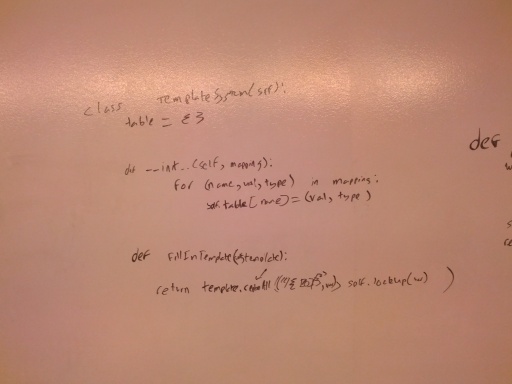 class TemplateSystem(str):
table = {}
def __init__(self, mapping):
for (name, val, type) in mapping:
self.table[name] = (val, type)
def fillInTemplate(template):
return template. self.lookup(w) )
def